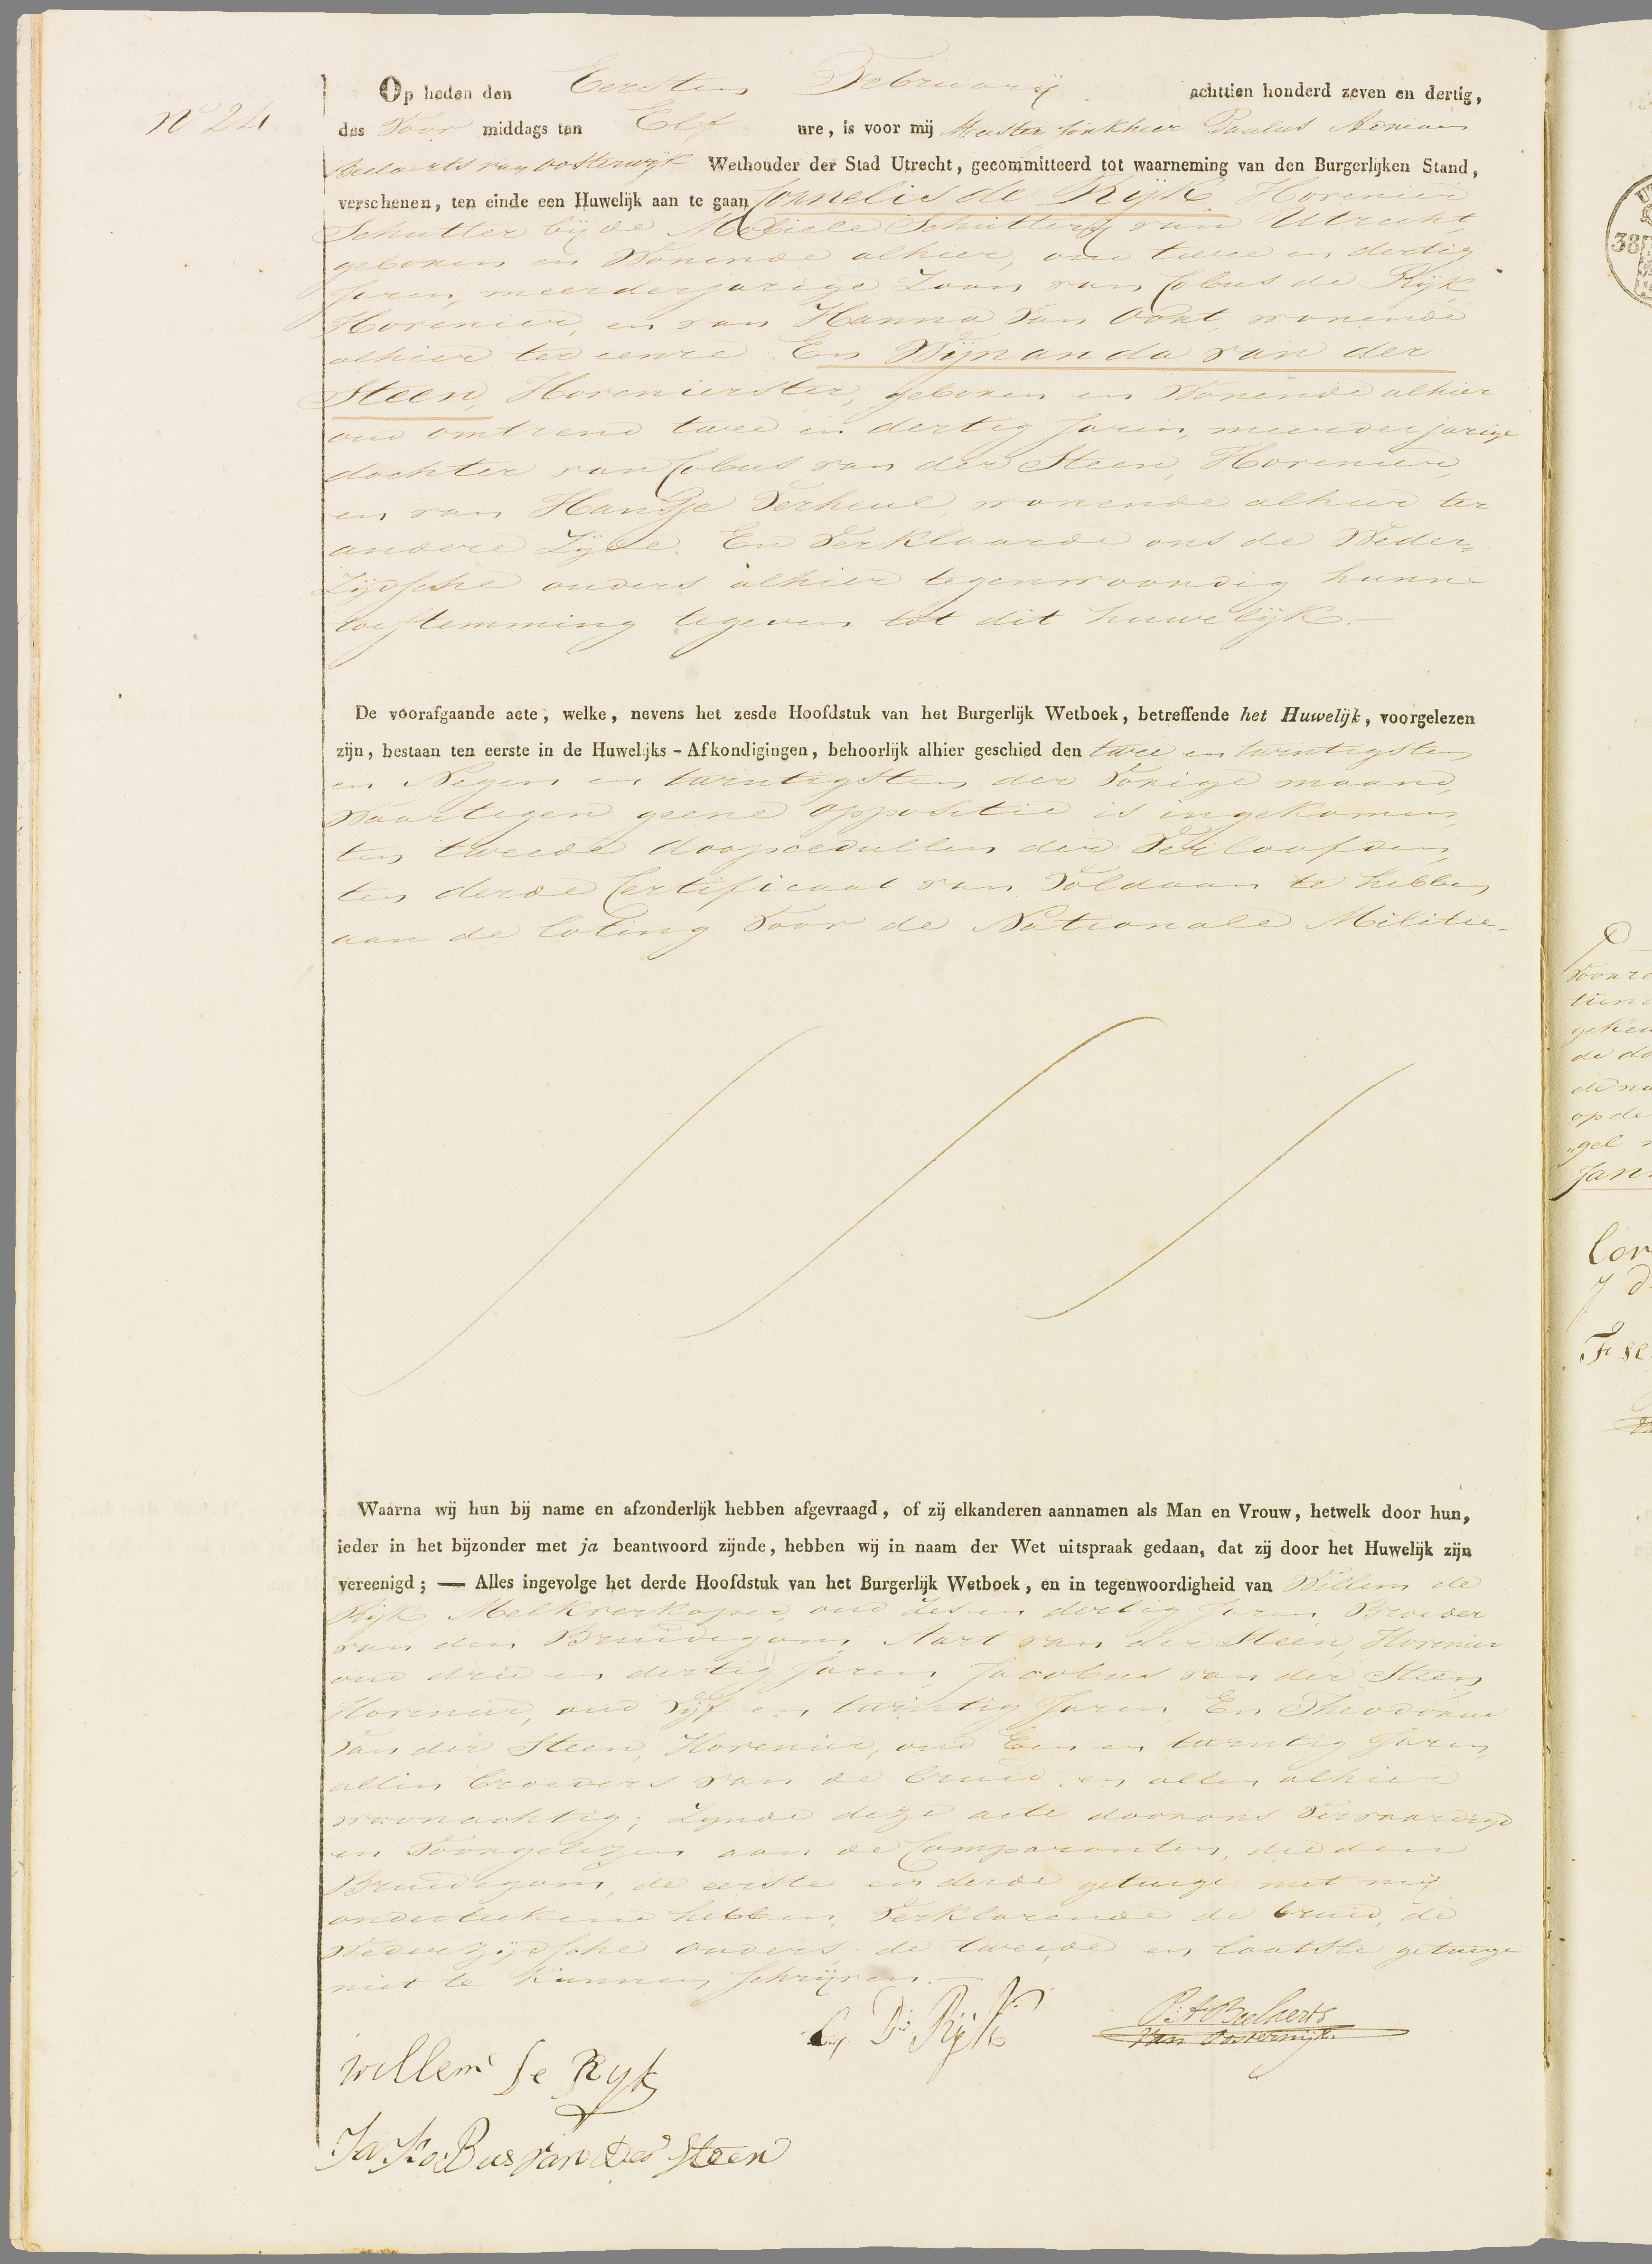 No 24
Op heden den Eersten Februarij achttien honderd zeven en dertig,
des Voor middags ten Elf ure, is voor mij Meester Jonkheer Paulus Adriaan
Beelaerts van Oosterwijk Wethouder der Stad Utrecht, gecommitteerd tot waarneming van den Burgerlijken Stand,
verschenen, ten einde een Huwelijk aan te gaan Cornelis de Rijk Hovenier
Schutter bij de Mobiele Schutterij van Utrecht,
geboren en Wonende alhier, oud twee en dertig
Jaren, meerderjarige Zoon van Cobus de Rijk
Hovenier, en van Hanna Van Oort, wonende
alhier ter eenre. En Wijnanda van der
Steen, Hovenierster, geboren en Wonende alhier
oud omtrend twee en dertig Jaren, meerderjarige
dochter van Cobus van der Steen, Hovenier,
en van Hansje Verheul, wonende alhier ter
andere Zijde. En Verklaarde ons de Weder=
Zijdsche ouders alhier tegenwoordig hunne
toestemming tegeven tot dit huwelijk.—
De voorafgaande acte, welke, nevens het zesde Hoofdstuk van het Burgerlijk Wetboek, betreffende het Huwelijk, voorgelezen
zijn, bestaan ten eerste in de Huwelijks-Afkondigingen, behoorlijk alhier geschied den twee en twintigsten
en Negen en twintigsten der Vorige maand,
Waartegen geene oppositie is ingekomen,
ten tweede doopcedullen der Verloofden,
ten derde Certificaat van Voldaan te hebben
aan de loting Voor de Nationale Militie.
Waarna wij hun bij name en afzonderlijk hebben afgevraagd, of zij elkanderen aannamen als Man en Vrouw, hetwelk door hun,
ieder in het bijzonder met ja beantwoord zijnde, hebben wij in naam der Wet uitspraak gedaan, dat zij door het Huwelijk zijn
vereenigd; — Alles ingevolge het derde Hoofdstuk van het Burgerlijk Wetboek, en in tegenwoordigheid van Willem de
Rijk, Melkverkoper, oud Zes en dertig Jaren Broeder
van den Bruidegom, Aart van der Steen, Hovenier
oud drie en dertig Jaren, Jacobus van der Steen,
Hovenier, oud Vijf en twintig Jaren, En Theodorus
Van der Steen, Hovenier, oud Een en twintig Jaren,
allen broeders van de bruid, en allen alhier
woonachtig; Zynde deze acte doorons Vervaardigd
en Voorgelezen aan de Comparanten, die den
Bruidegom, de eerste en derde getuige met mij
onderteekend hebben, Verklarende de bruid, de
Wederzijdsche ouders, de tweede en laatste getuige
niet te kunnen schrijven.—
C. De Rijk
P: A: Beelaerts
van Oosterwijk.
willem de Ryk
JaKoBus van der Steen